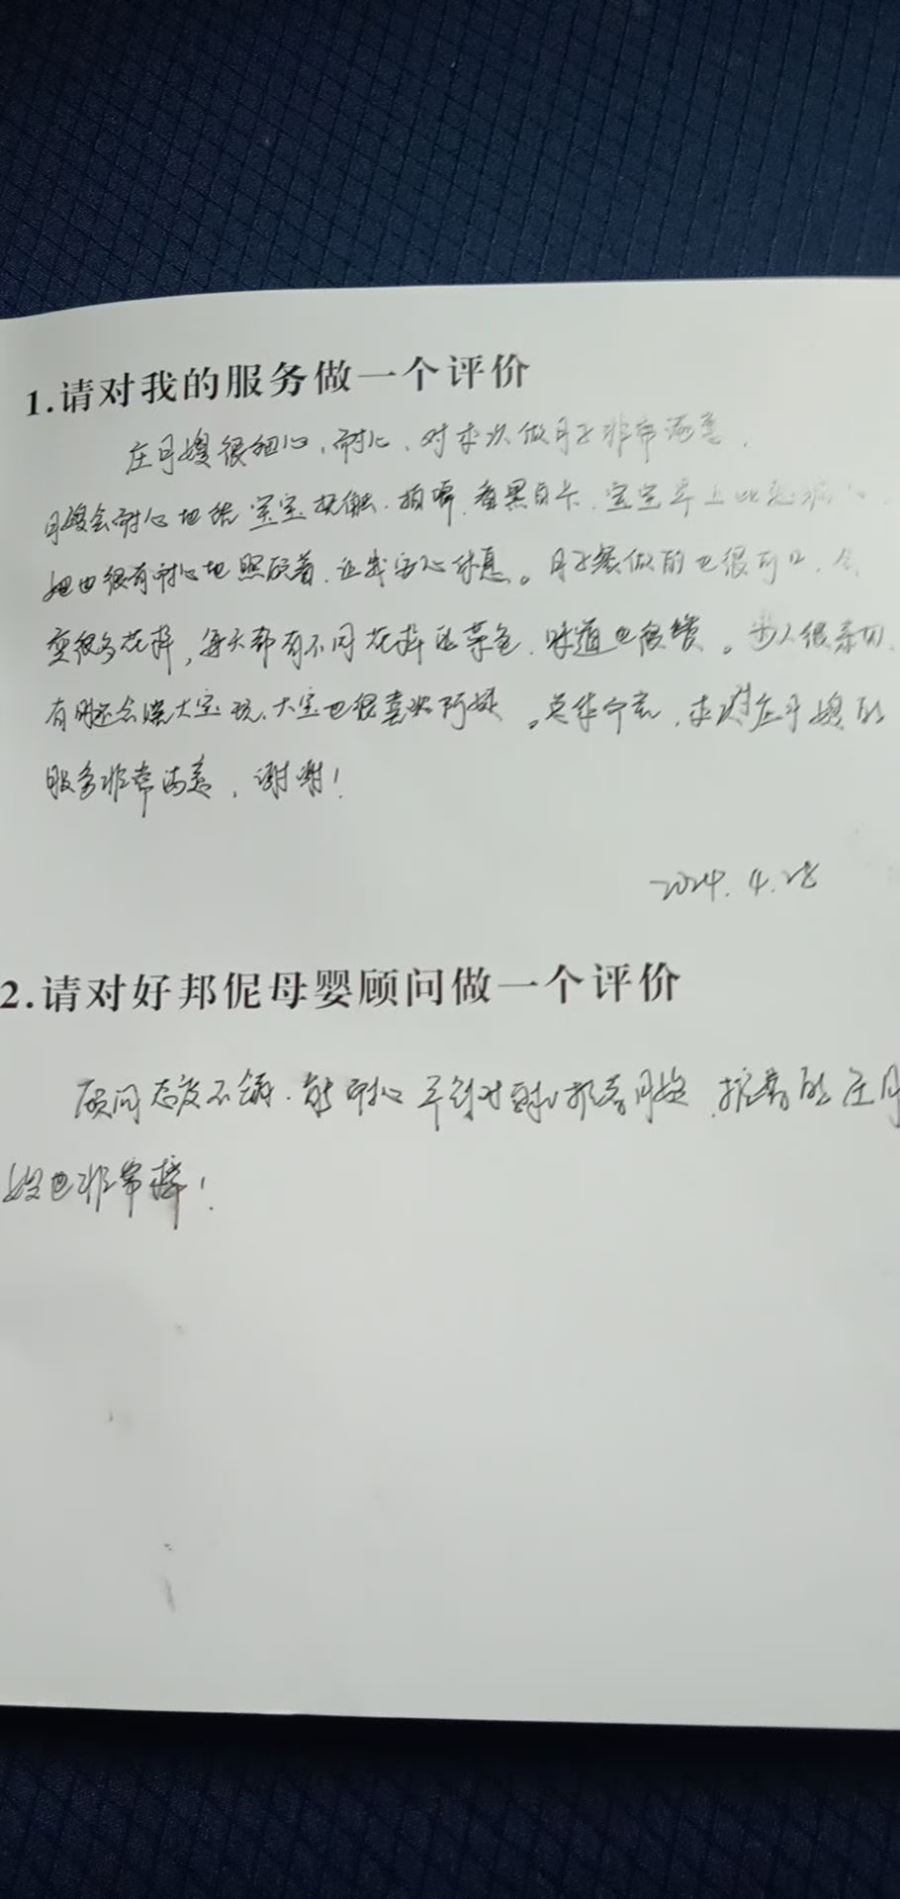 1.请对我的服务做一个评价
庄月嫂很细心、耐心、对本次做月子非常满意。
月嫂会耐心地给宝宝抚触、拍嗝、看黑白卡、宝宝早上
她也很有耐心地照顾着，让我安心休息。月子餐做的也很可口，会
变很多花样，每天都有不同花样的菜色，味道也很赞。为人很亲切，
有时还会陪大宝玩，大宝也很喜欢阿姨。总体而言，本次对庄月嫂的
服务非常满意，谢谢！
2024.4.28
2.请对好邦伲母婴顾问做一个评价
顾问态度不错，能耐心 针对 推荐月嫂，推荐的庄月
嫂也非常棒！